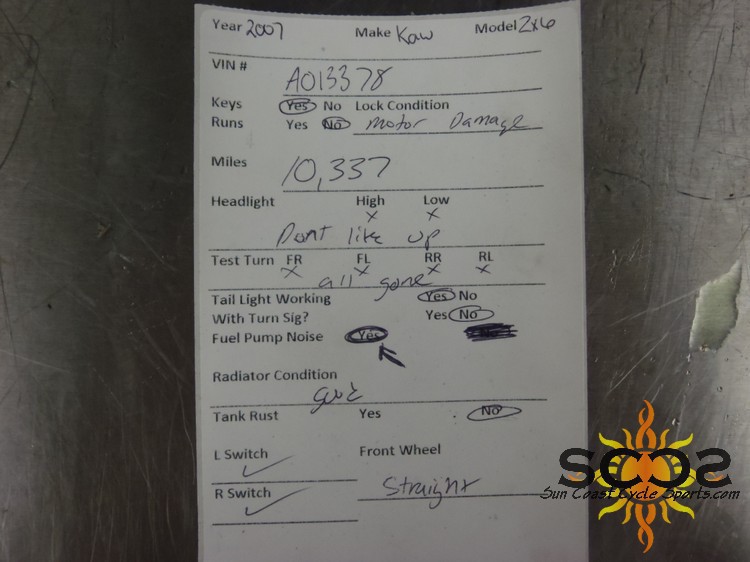 Year 2007 Make Kaw Model Zx6
VIN # A013378
Keys Yes No Lock Condition
Runs Yes No Motor Damage
Miles 10,337
Headlight High Low
x x
Dont like up
Test Turn FR FL RR RL
x x x x
all gone
Tail Light Working Yes No
With Turn Sig? Yes No
Fuel Pump Noise Yes
Radiator Condition
good
Tank Rust Yes No
L Switch ✓ Front Wheel
R Switch ✓ Straight
SCCS
Sun Coast Cycle Sports.com